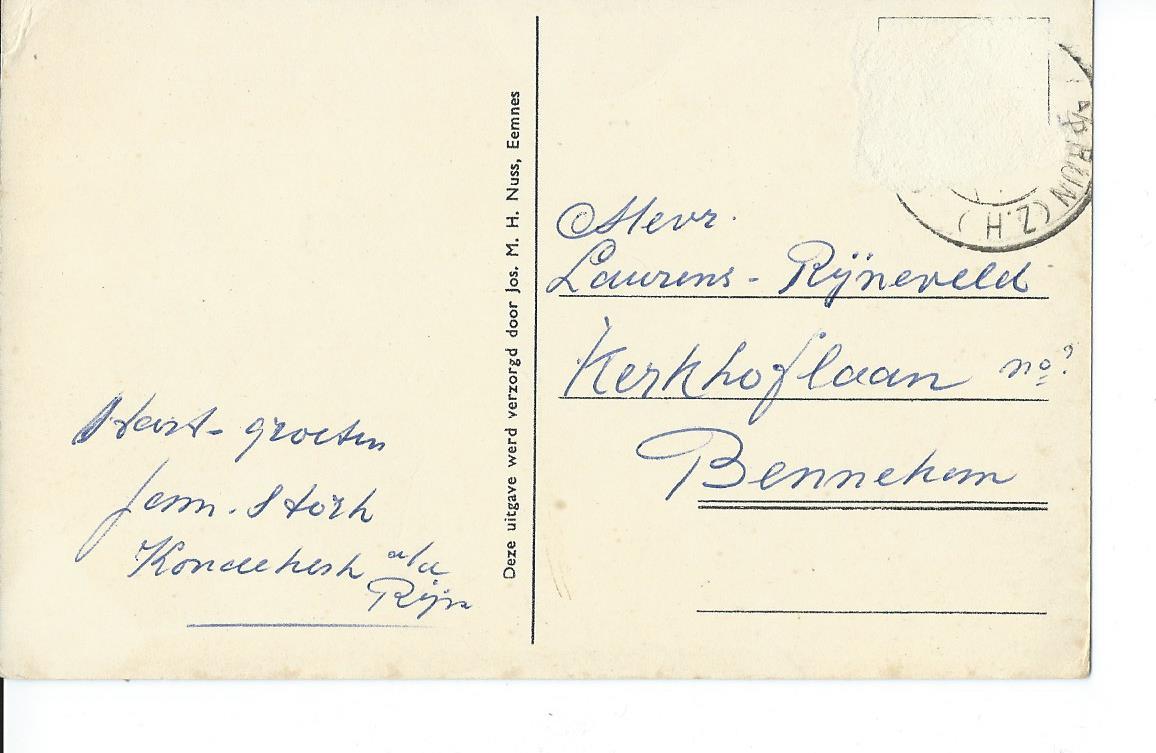 Hart- groeten
fam. Störk
Koudekerk a/d
Rijn
Deze uitgave werd verzorgd door Jos. M. H. Nuss, Eemnes
A/D RIJN (Z.H)
Mevr.
Laurens - Rijneveld
Kerkhoflaan no?
Bennekom